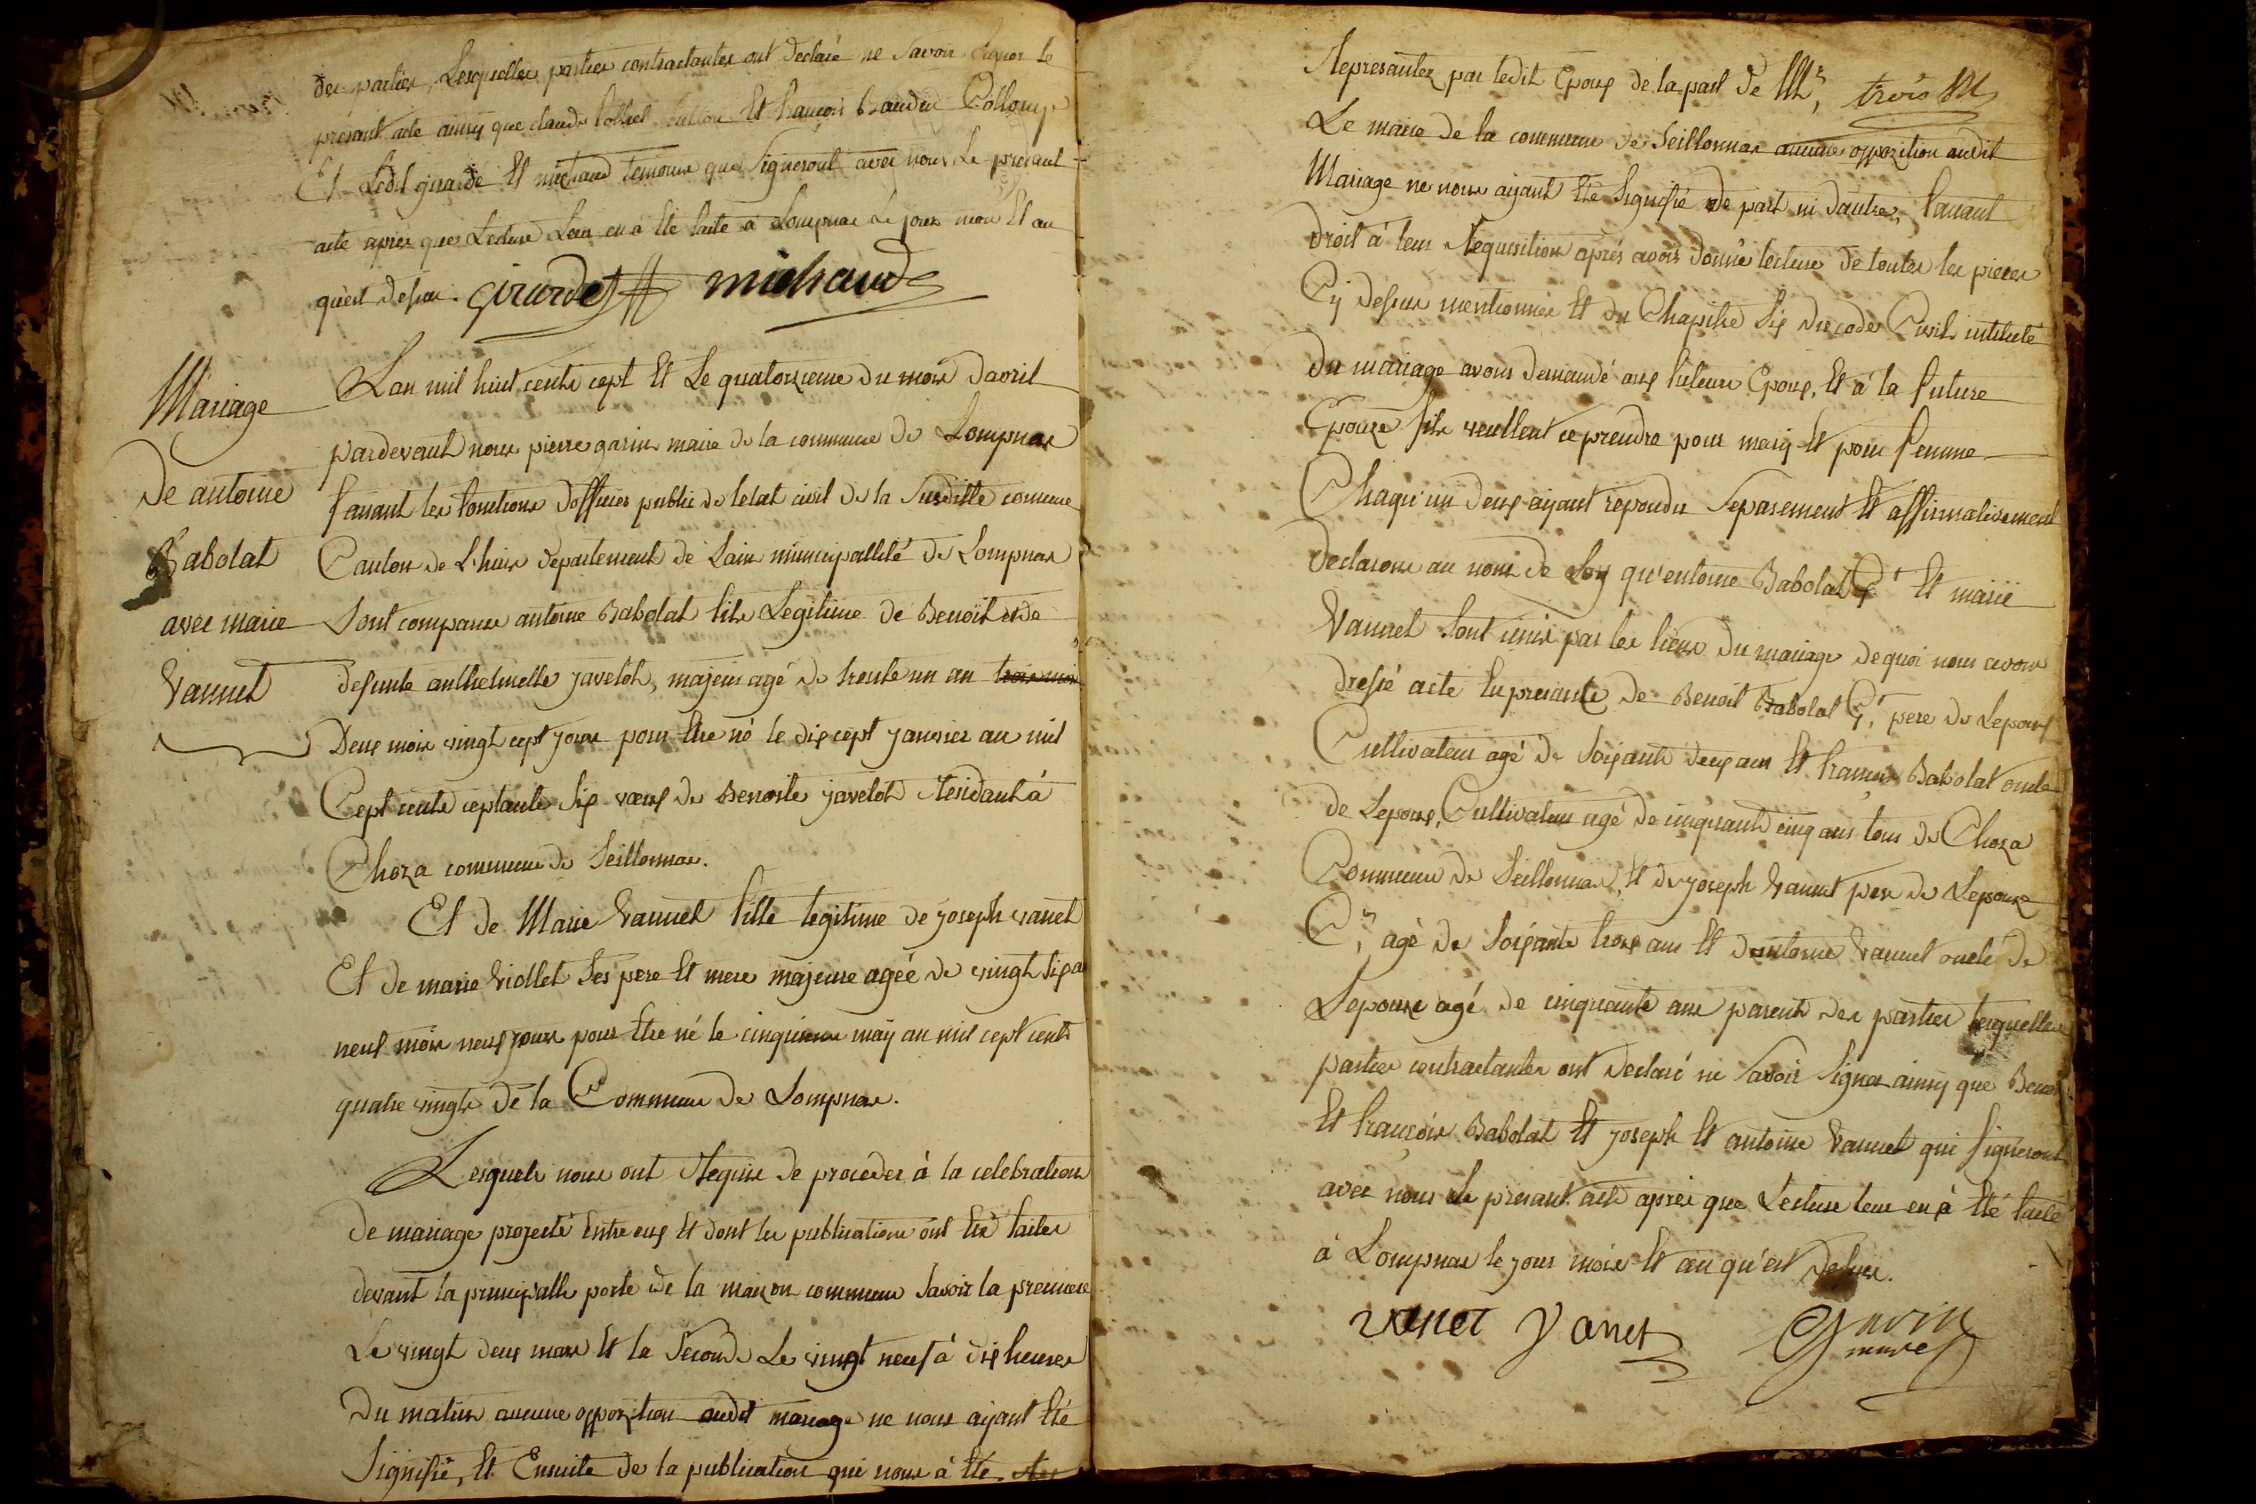 des parties, Lesquelles parties contractantes ont declaré ne savoir signer le
présent acte ainsy que claude et françois
Et Ledit girardé Et michaud temoins qui signeront avec nous Le présent
acte apres que Lecture Leur en à Eté faite à Lompnas Le jour mois Et an
quest desus. girardet michaud
Mariage
De antoine
Babolat
avec marie
Vannet
Lan mil huit cents cept Et Le quatorzieme du mois davril
pardevant nous pierre garin maire de la commune de Lompnas
faisant les fonctions dofficier public de letat civil de la susditte commune
Canton de L'huis departement de Lain municipallité de Lompnas
sont comparus antoine Babolat fils Legitime de Benoit et de
defunte anthelmette javelot, majeur agé de trente un an trois mois
Deux mois vingt cept jours pour Etre né le dix cept janvier an mil
Cept cents ceptante six veuf de Benoite javelot Residant à
Choza commune de Seillonnas.
Et de Marie Vannet fille legitime de joseph vanet
Et de marie Viollet ses pere Et mere majeure ageé de vingt six an
neuf mois neuf jours pour Etre né le cinquieme may an mil cept cents
quatre vingts de la Commune de Lompnas.
Lesquels nous ont Requis de proceder à la celebration
de mariage projecté Entre eux Et dont les publications ont Eté faites
devant la principalle porte de la maison commune savoir la premiere
Le vingt deux mars Et la seconde Le vingt neuf à dix heures
Du matin aucune opposition audit mariage ne nous ayant Eté
signifié, Et Ensuite de la publication qui nous à Eté
Represantez par ledit Epoux de la part de Mr, trois M
Le maire de la commune de Seillonnas aucune opposition audit
Mariage ne nous ayant Eté signifié de part ni dautre, faisant
droit à leur Requisition aprés avoir donné lecture de toutes les pieces
Cy desus mentionnées Et du Chapitre six du code Civil intitulé
du mariage avons demandé aux futeurs Epoux, Et à la future
Epouze sils veullent ce prendre pour mary Et pour femme
Chaqu'un deux ayant repondu separement Et affirmativement
declarons au nom de Loy qu'entoine Babolat Ct Et marie
Vannet sont unis par les liens du mariage de quoi nous avons
dressé acte En presance de Benoit Babolat Ct pere de Lepoux
Cultivateur agé de soixante deux ans Et françois Babolat oncle
de Lepoux, Cultivateur agé de cinquante cinq ans tous de Choza
Commune de Seillonnas, Et de joseph Vannet pere de Lepouze
Cr, agé de soixante trois ans Et dantoine Vannet oncle de
Lepouse agé de cinquante ans parents des parties lesquelles
parties contractantes ont declaré ne savoir signer ainsy que Benoit
Et françois Babolat Et joseph Et antoine Vannet qui signeront
avec nous le presant acte aprés que Lecture leur en à Eté faite
à Lompnas le jour mois Et an qu'est desus.
vanet vanet garin
maire